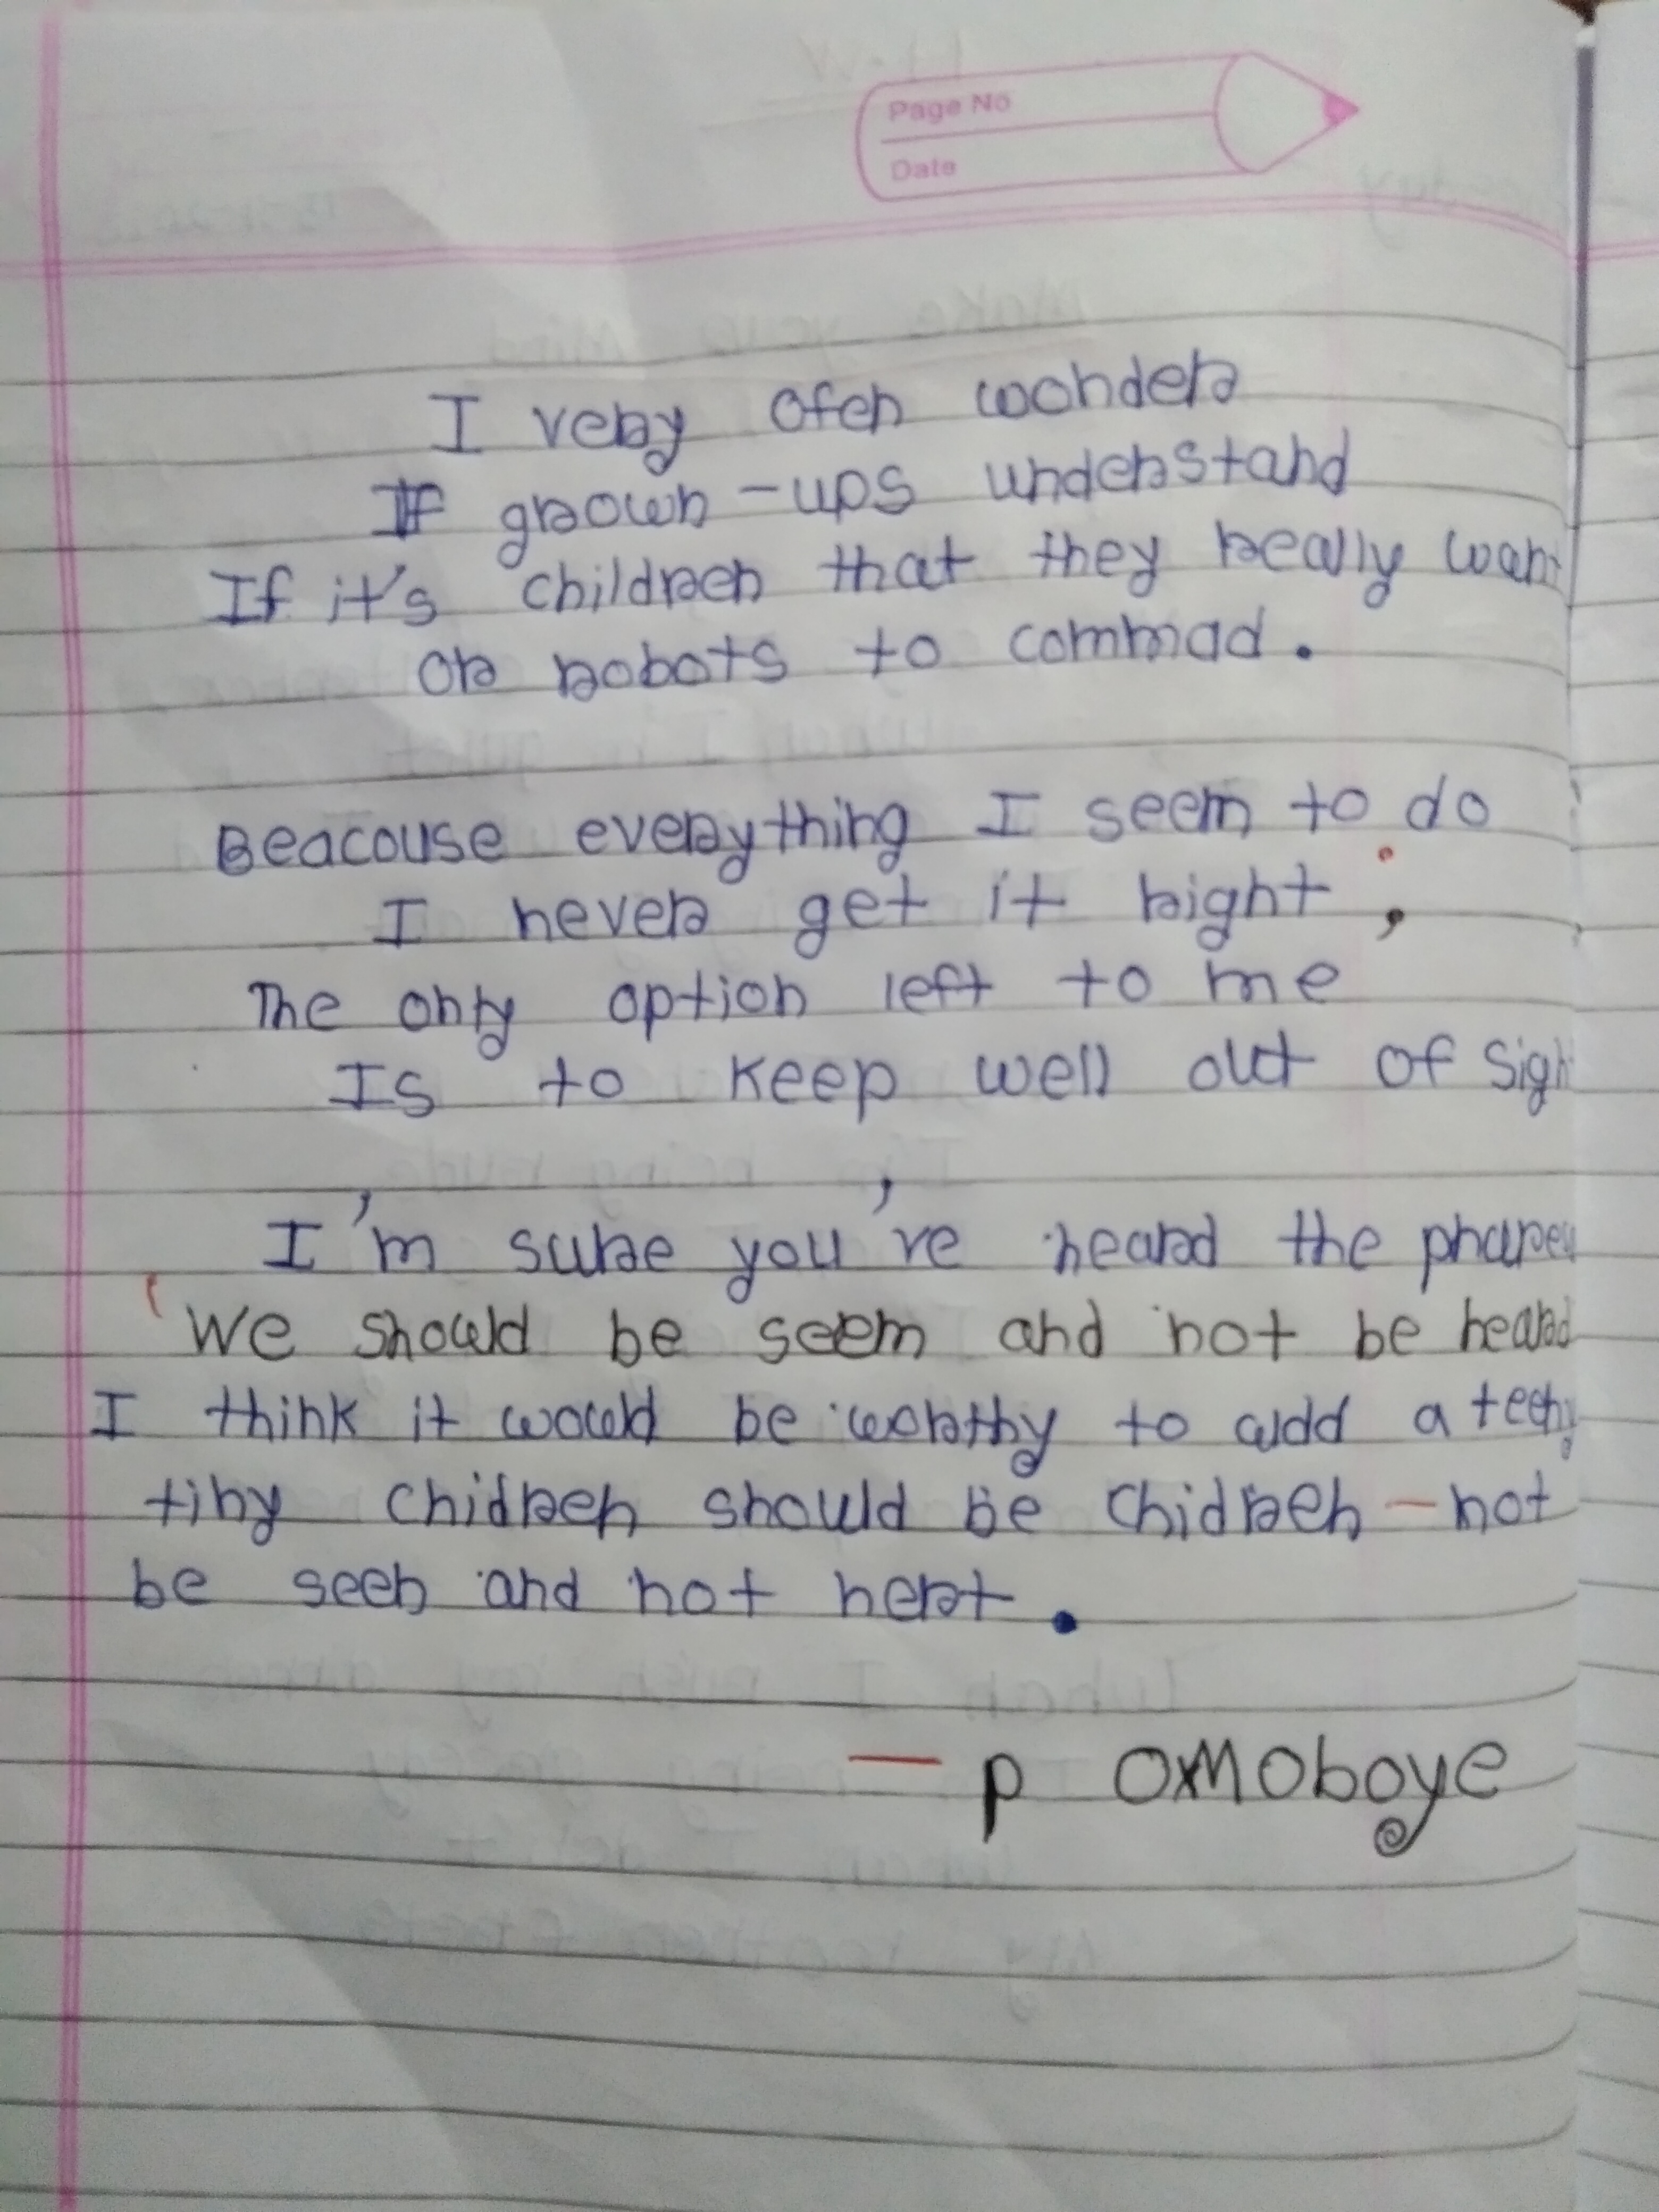 Page No
Date
I very ofen wonder
If grown-ups understand
If it's children that they really want
Or robots to commad.
Beacouse everything I seem to do
I never get it right;
The only option left to me
Is to keep well out of sigh
I'm sure you've heard the
'We should be seem and not be heard
I think it would be worthy to add a teeny
tiny chidren should be chidren - not
be seen and not hert.
- p omoboye